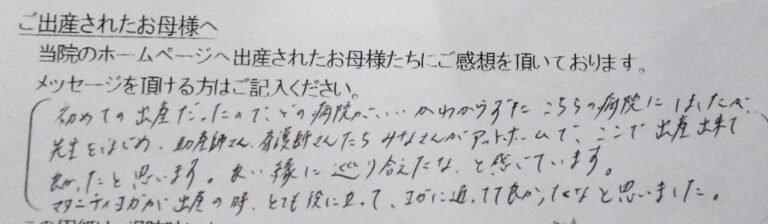 ご出産されたお母様へ
当院のホームページへ出産されたお母様たちにご感想を頂いております。
メッセージを頂ける方はご記入ください。
初めての出産だったので、どの病院がいい・・かわからずに こちらの病院にしましたが、
先生をはじめ、助産師さん、看護師さんたち みなさんがアットホームで、ここで出産出来て
良かったと思います。良い縁に巡り合えたな、と感じています。
マタニティヨガが出産の時、とても役に立って、ヨガに通ってて良かったなと思いました。